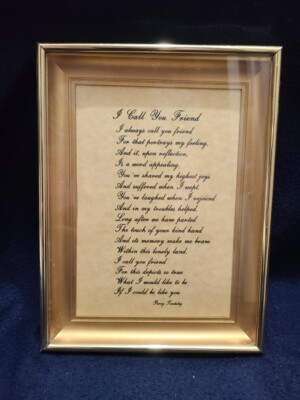 I Call You Friend
I always call you friend
For that portrays my feeling,
And it, upon reflection,
Is a word appealing.
You've shared my highest joys
And suffered when I wept.
You've laughed when I rejoiced
And in my troubles helped.
Long after we have parted
The touch of your kind hand
And its memory make me brave
Within this lonely land.
I call you friend
For this depicts so true
What I would like to be
If I could be like you
Perry